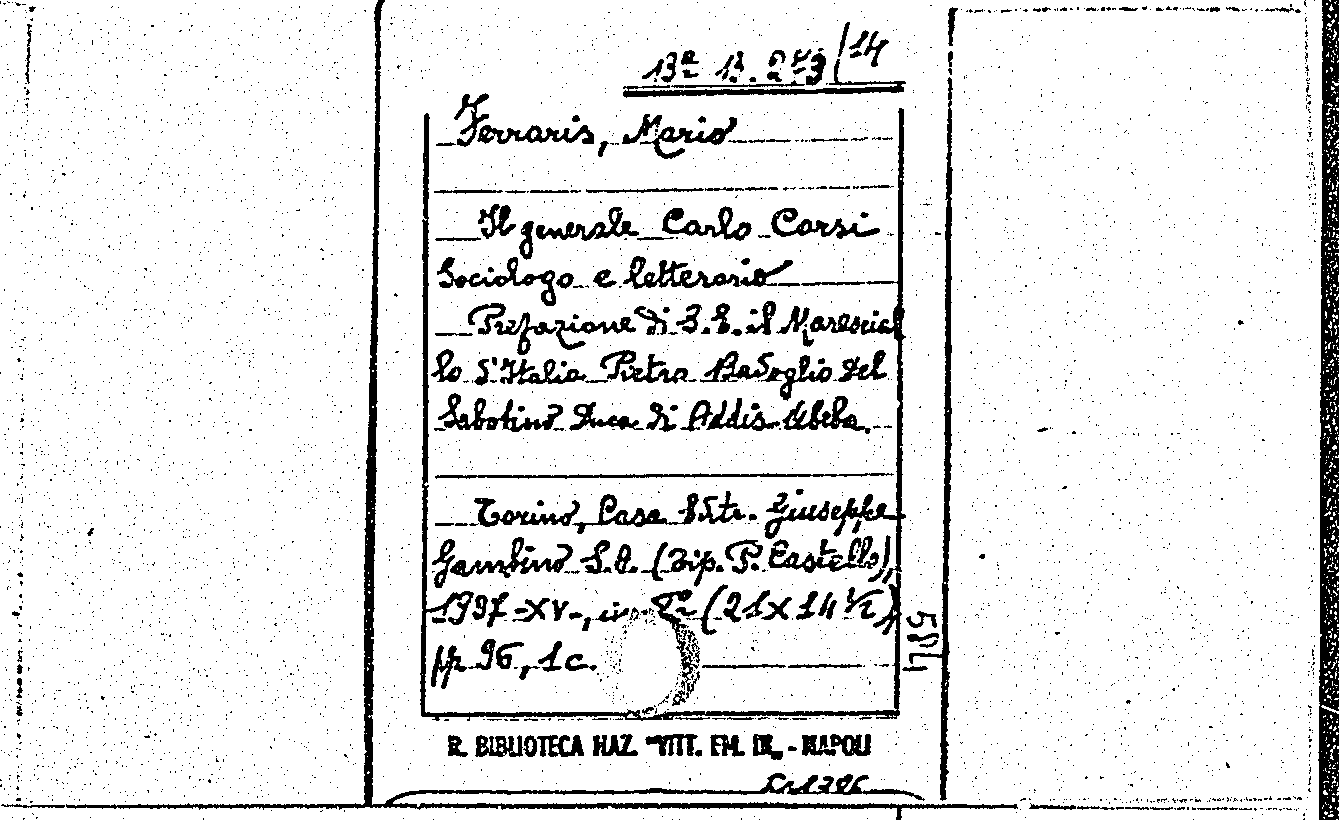 13ª 13. 273/14
Ferraris, Mario
Il generale Carlo Corsi
Sociologo e letterario
Prefazione di S.E. il Marescial
lo d'Italia Pietro Badoglio del
Sabotino Duca di Addis-Abeba.
Torino, Casa Edit. Giuseppe
Gambino S.A. (Tip. P. Castello),
1937-XV-, in 8º (21x14½),
pp 96, 1c.
584
R. BIBLIOTECA NAZ. "VITT. EM. III„ - NAPOLI